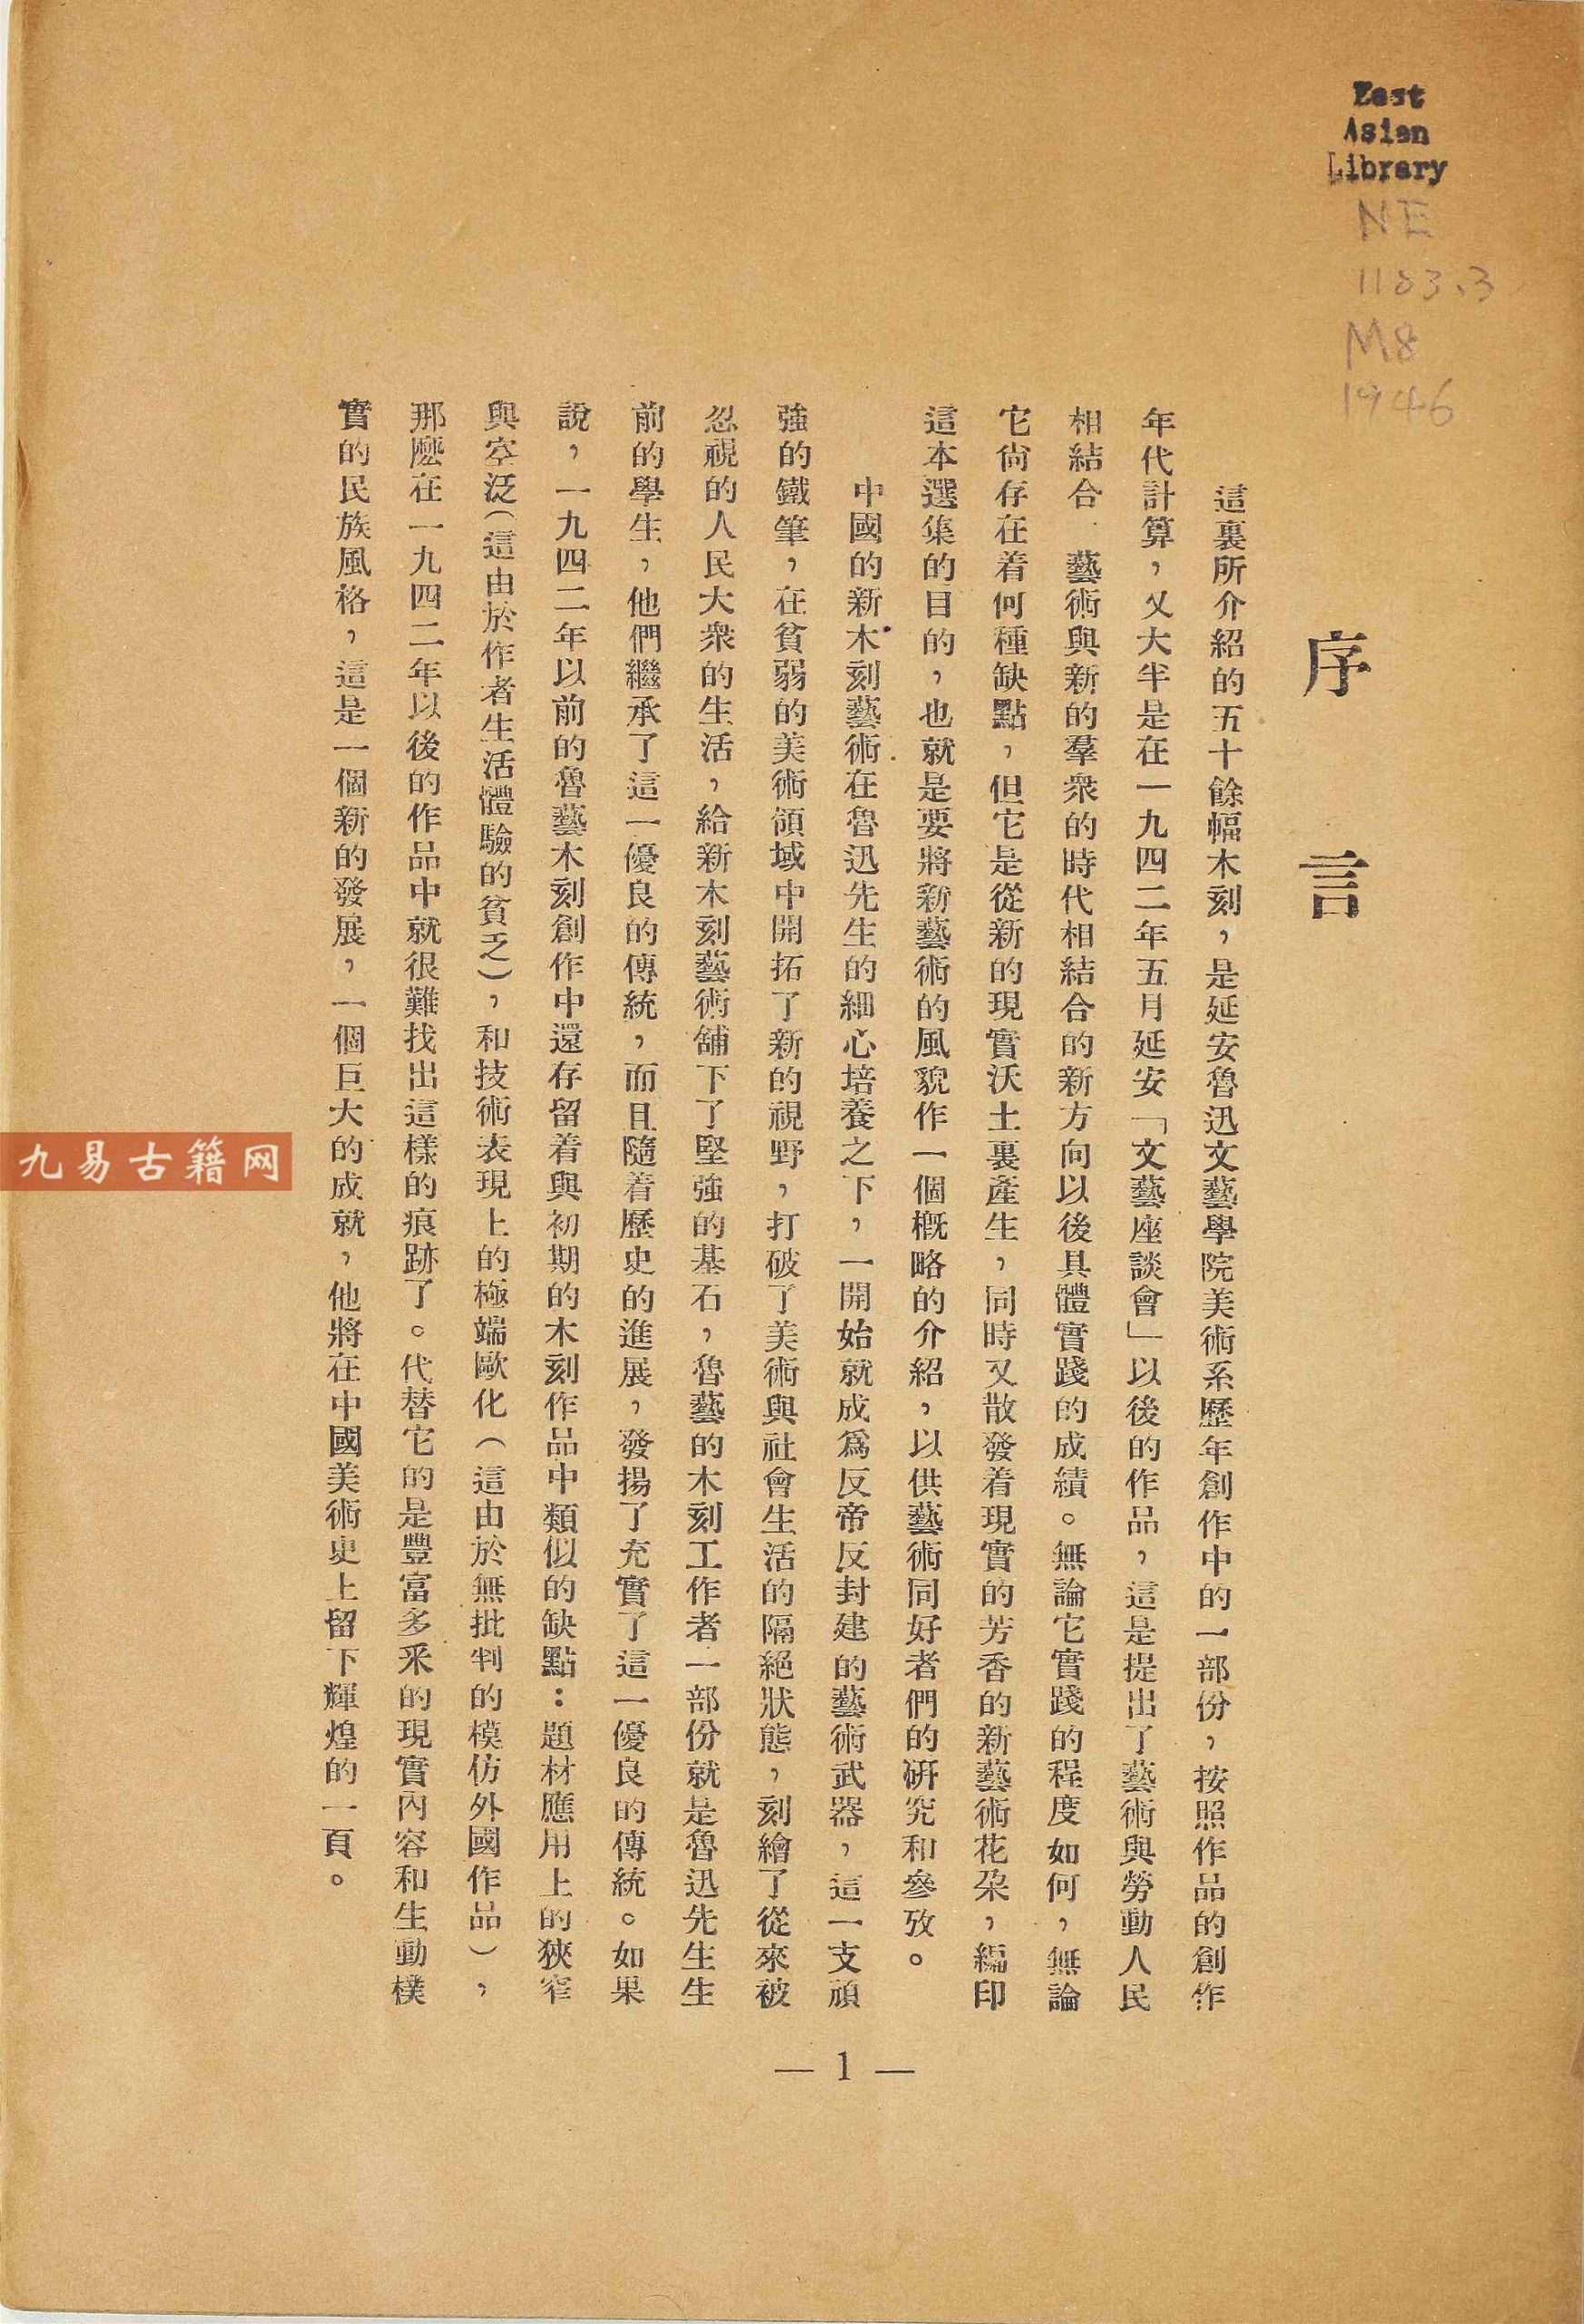 East
Asian
Library
NE
1183.3
M8
1946
序言
這裏所介紹的五十餘幅木刻，是延安魯迅文藝學院美術系歷年創作中的一部份，按照作品的創作
年代計算，又大半是在一九四二年五月延安「文藝座談會」以後的作品，這是提出了藝術與勞動人民
相結合．藝術與新的羣衆的時代相結合的新方向以後具體實踐的成績。無論它實踐的程度如何，無論
它尙存在着何種缺點，但它是從新的現實沃土裏產生，同時又散發着現實的芳香的新藝術花朶，編印
這本選集的目的，也就是要將新藝術的風貌作一個槪略的介紹，以供藝術同好者們的硏究和參攷。
中國的新木刻藝術在魯迅先生的細心培養之下，一開始就成爲反帝反封建的藝術武器，這一支頑
強的鐵筆，在貧弱的美術領域中開拓了新的視野，打破了美術與社會生活的隔絕狀態，刻繪了從來被
忽視的人民大衆的生活，給新木刻藝術舖下了堅強的基石，魯藝的木刻工作者一部份就是魯迅先生生
前的學生，他們繼承了這一優良的傳統，而且隨着歷史的進展，發揚了充實了這一優良的傳統。如果
說，一九四二年以前的魯藝木刻創作中還存留着與初期的木刻作品中類似的缺點：題材應用上的狹窄
與空泛（這由於作者生活體驗的貧乏），和技術表現上的極端歐化（這由於無批判的模仿外國作品），
那麽在一九四二年以後的作品中就很難找出這樣的痕跡了。代替它的是豐富多釆的現實內容和生動樸
實的民族風格，這是一個新的發展，一個巨大的成就，他將在中國美術史上留下輝煌的一頁。
— 1 —
九易古籍网